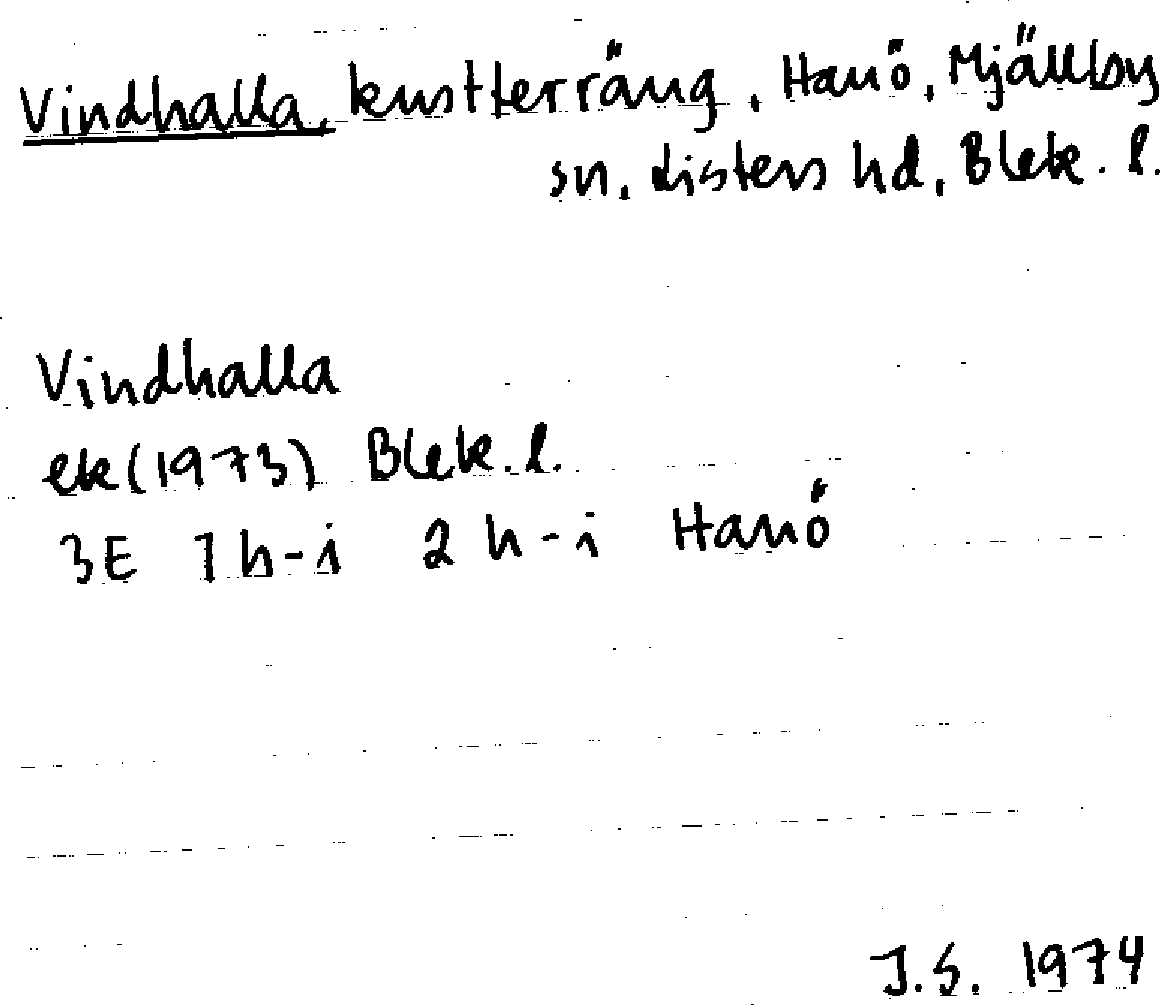 Vindhalla, kustterräng, Hanö, Mjällby
sn, Listers hd, Blek. l.
Vindhalla
ek (1973) Blek. l.
3E 1 h-i 2 h-i Hanö
J.S. 1974